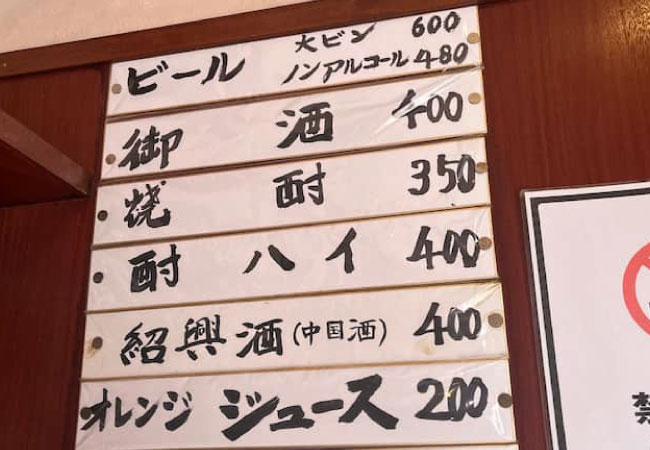 ビール 大ビン 600
ノンアルコール 480
御酒 400
焼酎 350
酎ハイ 400
紹興酒(中国酒) 400
オレンジジュース 200
禁